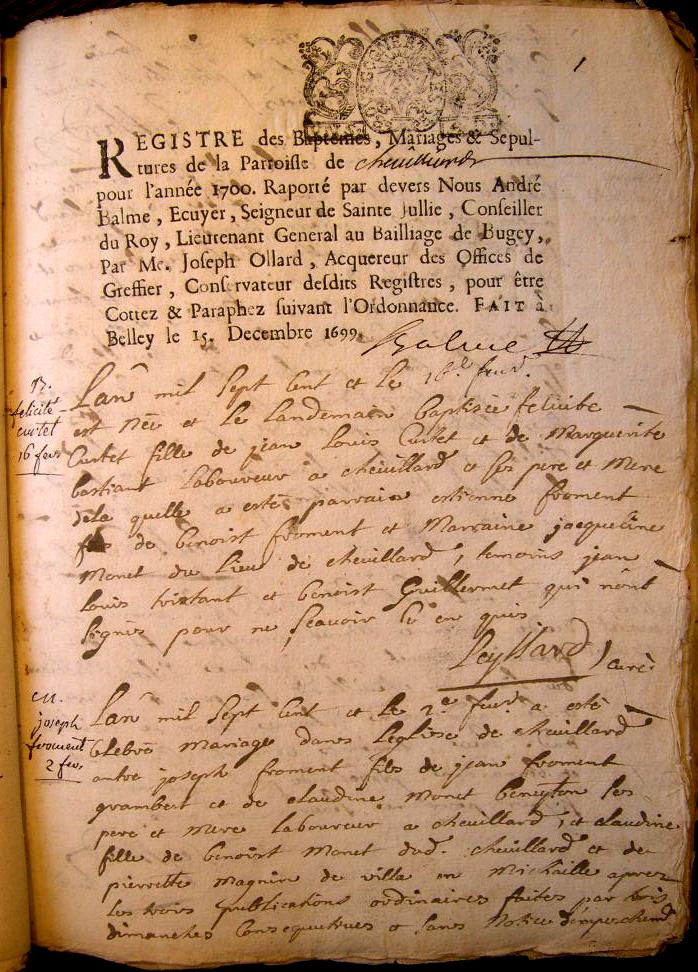 1
REGISTRE des Baptemes, Mariages & Sepul-
tures de la Parroisse de
pour l'année 1700. Raporté par devers Nous André
Balme, Ecuyer, Seigneur de Sainte Jullie, Conseiller
du Roy, Lieutenant General au Bailliage de Bugey,
Par Me. Joseph Ollard, Acquereur des Offices de
Greffier, Conservateur desdits Registres, pour être
Cottez & Paraphez suivant l'Ordonnance. FAIT à
Belley le 15. Decembre 1699.
Balme
B.
felicité
curtet
16 fev
Lan mil sept cent et le 16e fevr.
est née et le landemain baptisée felicite
Curtet fille de jean louis Curtet et de Marguerite
bastiant laboureur a chevillard ses pere et mere
de la quelle a esté parrain estienne froment
de benoist froment et Marraine jacqueline
Monet du lieu de chevillard, temoins jean
louis tristant et benoist Guillermet qui n'ont
signés pour ne scavoir de ce quis
Leyssard curé
M.
joseph
froment
2 fev
Lan mil sept cent et le 2e fevr a esté
celebré mariage dans leglise de chevillard
entre joseph froment fils de jean froment
grambert et de claudine Monet beneyton ses
pere et mere laboureur a chevillard, et claudine
fille de benoist Monet dud. chevillard et de
pierrette Magnin de villa en Michaille apres
les trois publications ordinaires faites par trois
dimanches consequtives et sans